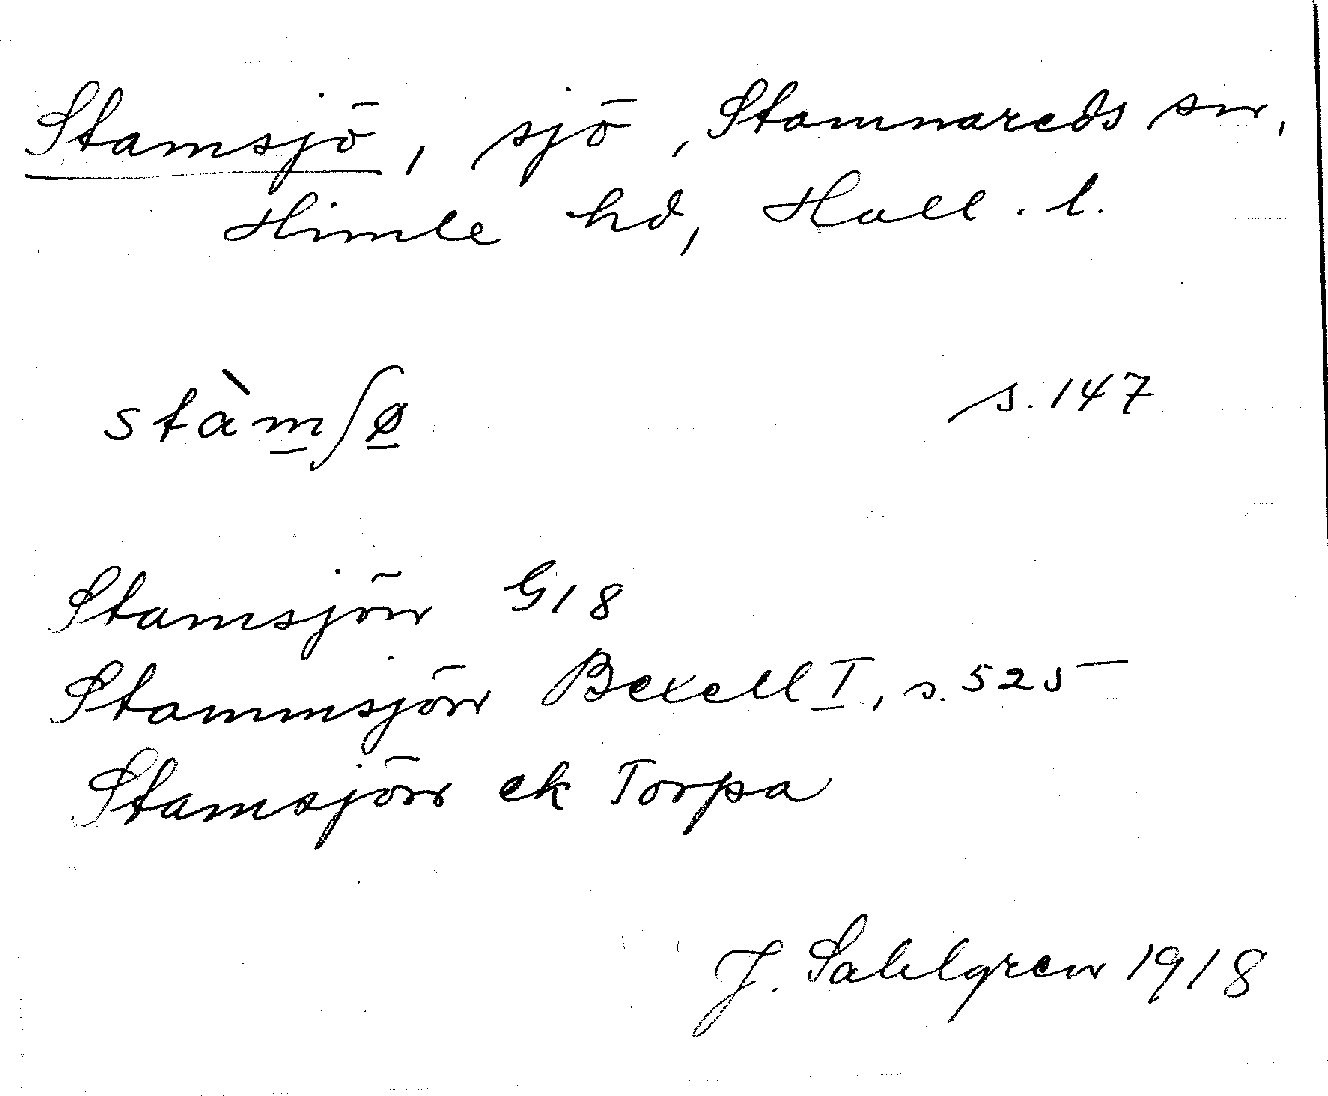 Stamsjö, sjö, Stamnareds sn,
Himle hd, Hall. l.
stàm̲ʃø̲ s. 147
Stamsjön G18
Stammsjön Bexell I, s. 525
Stamsjön ek Torpa
J. Sahlgren 1918